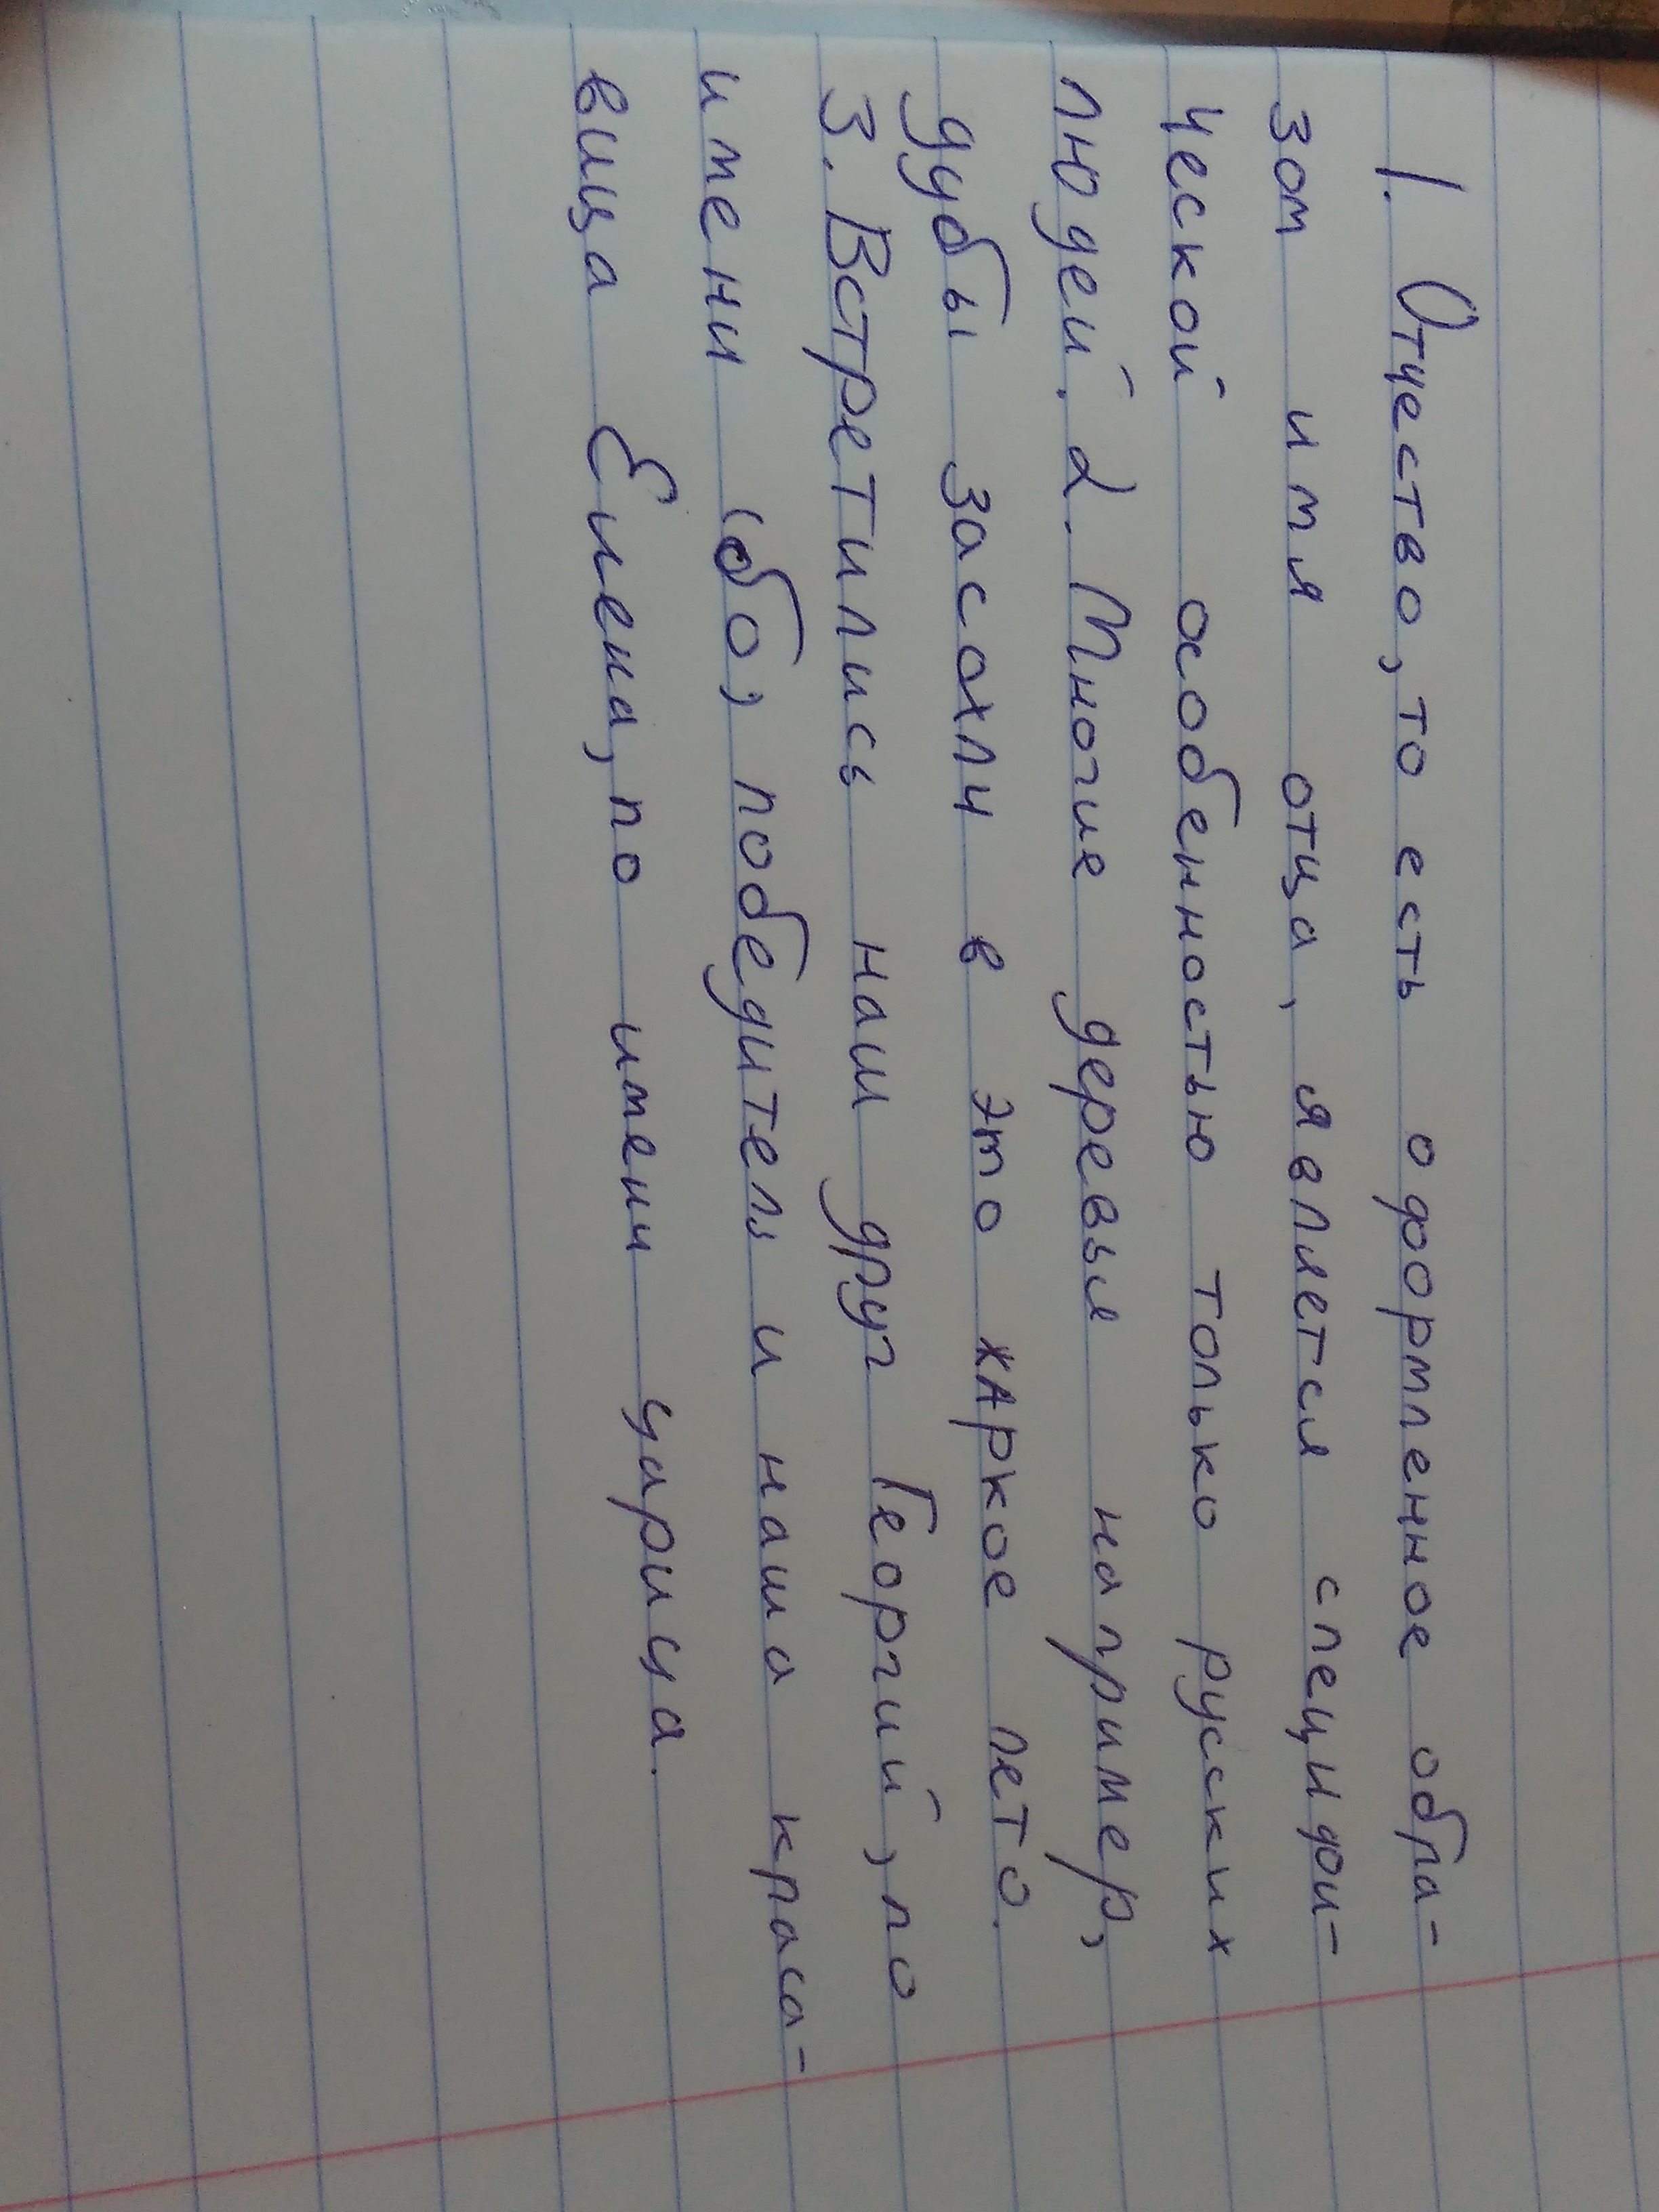 1. Отчество, то есть оформленное обра-
зом имя отца, является специфи-
ческой особенностью только руских
людей. 2. Многие деревья например,
дубы засохли в это жаркое лето.
3. Встретились наш друг Георгий, по
имени (обо, победитель и наша краса-
вица Елена, по имени царица.